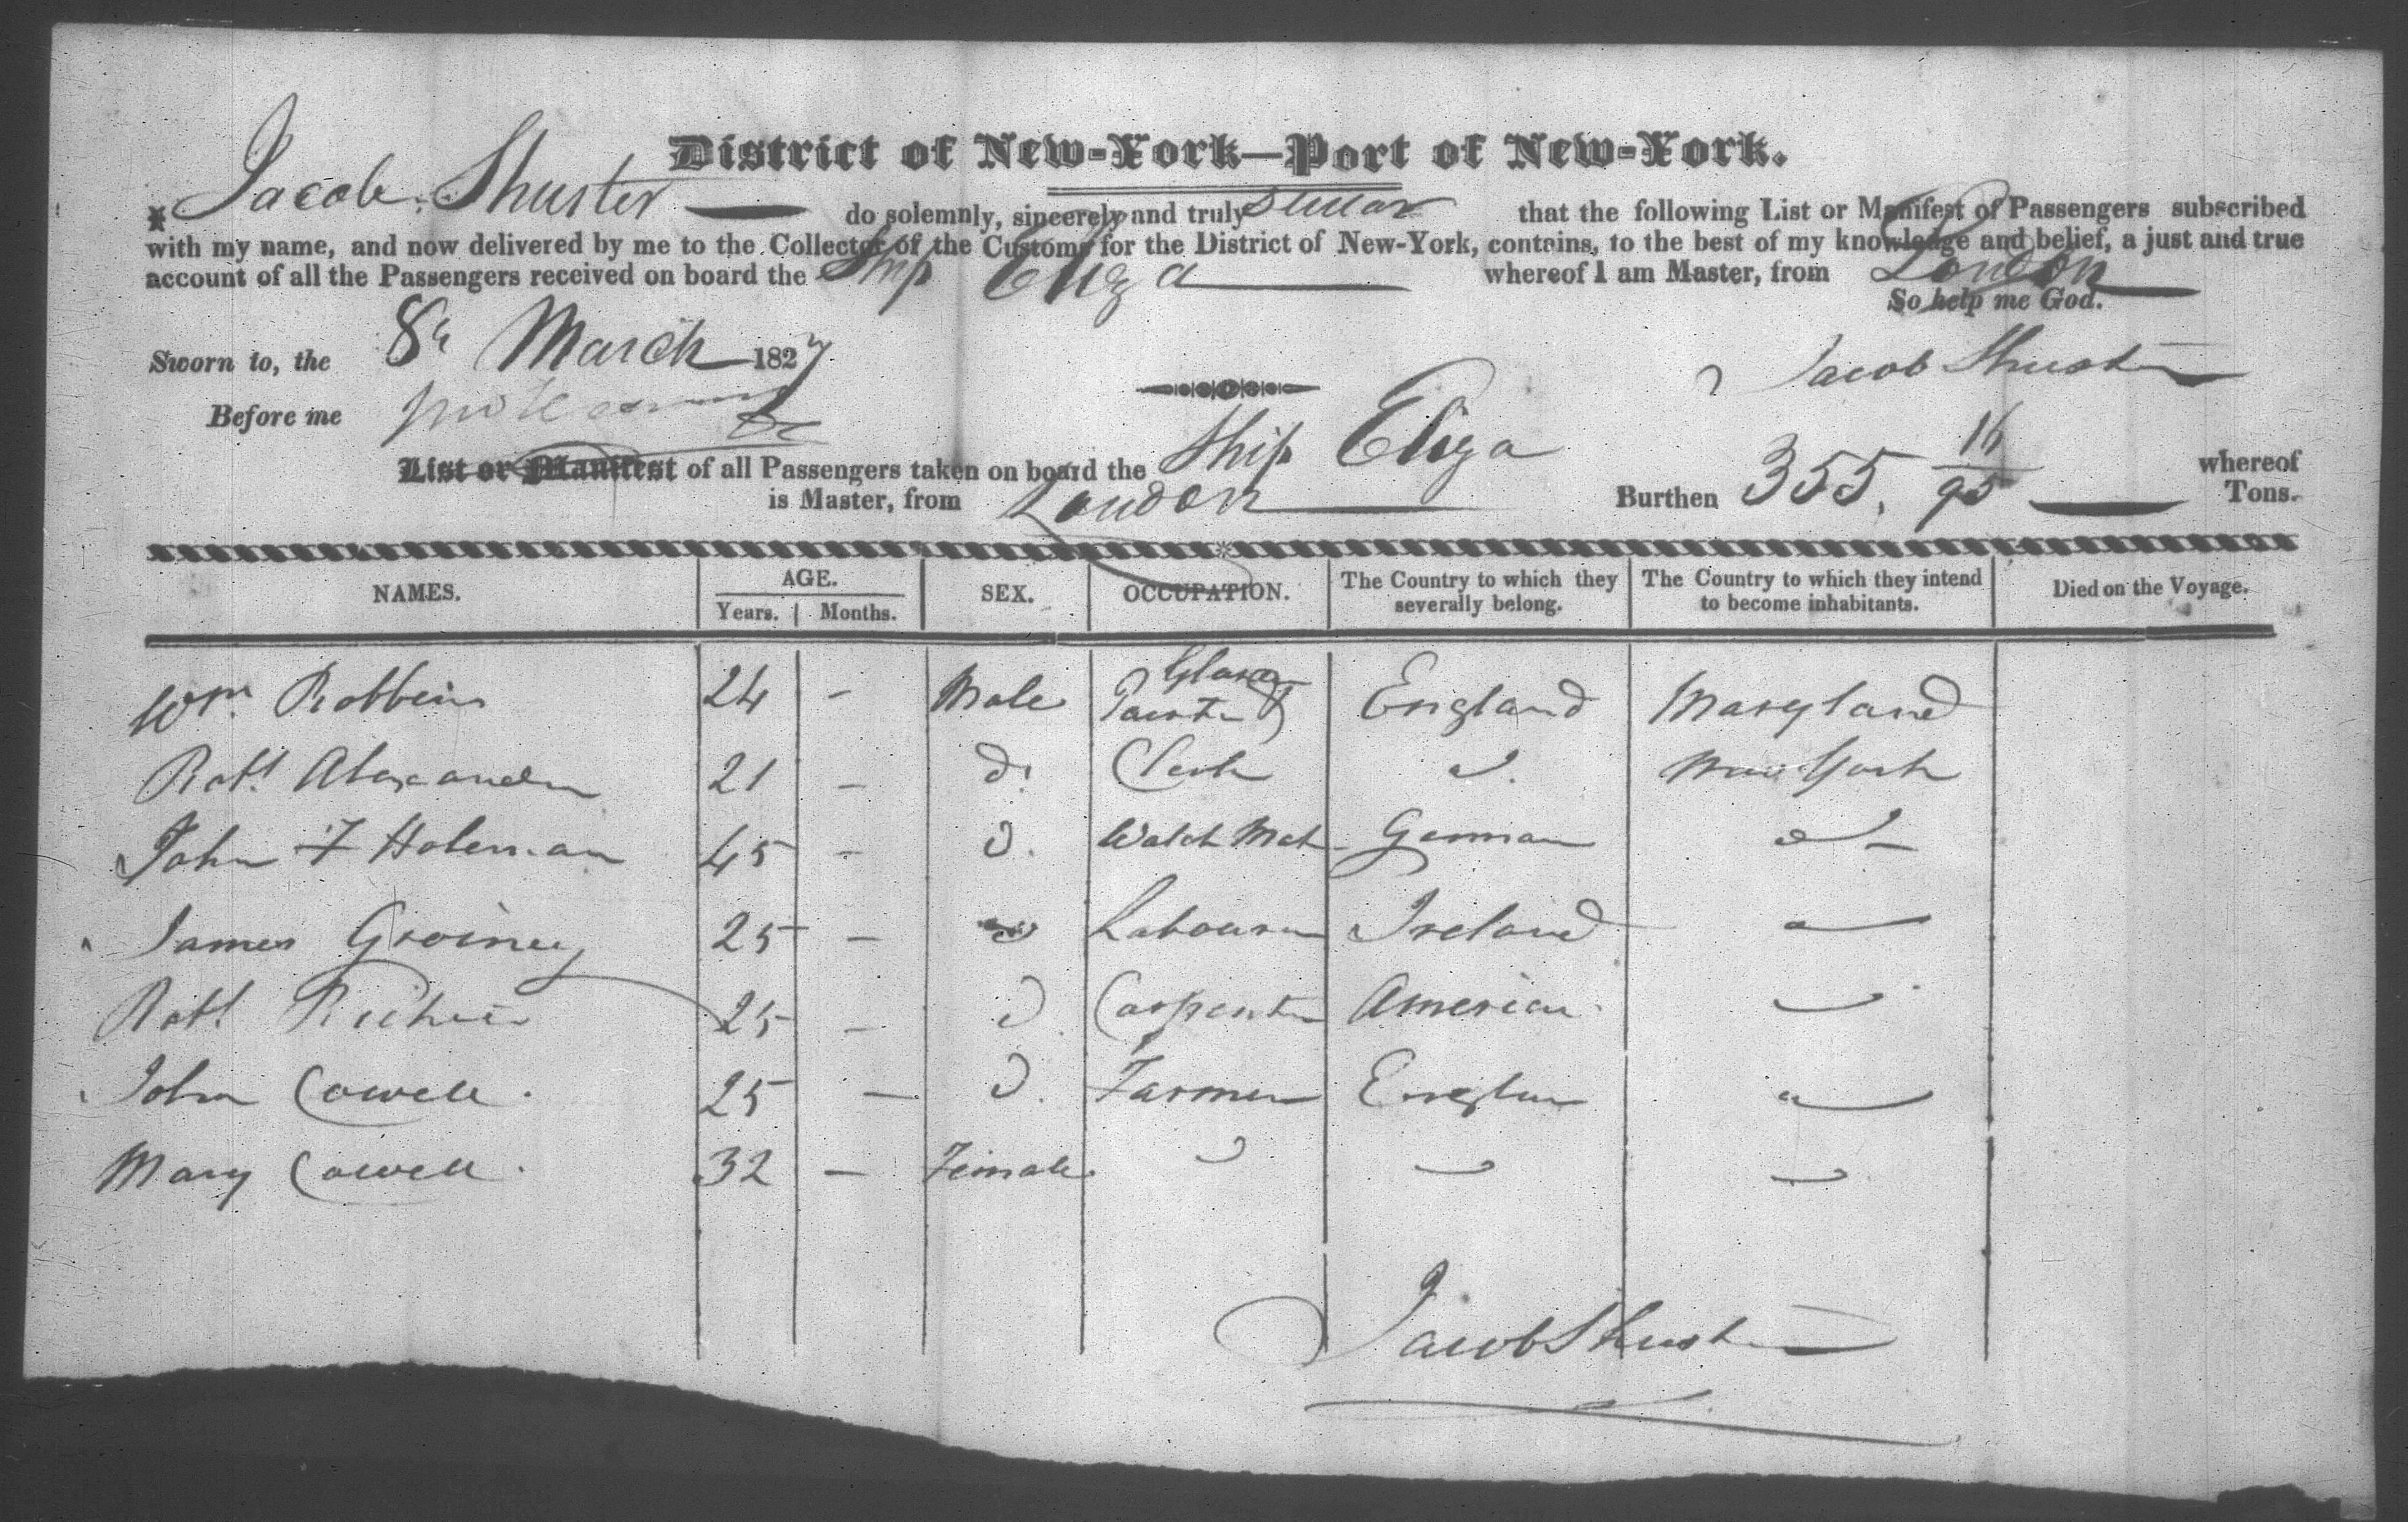 District of New-York—Port of New-York.
I Jacob Shuster do solemnly, sincerely and truly swear that the following List or Manifest of Passengers subscribed
with my name, and now delivered by me to the Collector of the Customs for the District of New-York, contains, to the best of my knowledge and belief, a just and true
account of all the Passengers received on board the Ship Eliza whereof I am Master, from London
So help me God.
Sworn to, the 8th March 1827
Jacob Shuster
Before me
List or Manifest of all Passengers taken on board the Ship Eliza whereof
is Master, from London Burthen 355. 16/95 Tons.
NAMES. AGE. Years. Months. SEX. OCCUPATION. The Country to which they severally belong. The Country to which they intend to become inhabitants. Died on the Voyage.
Wm. Robbins 24 - Male Painter & England Maryland
Robt. Alexander 21 - do. Clerk do. New York
John F Holeman 45 - do. Watch Mak German do
James 25 - do Labourer Ireland
Robt. 25 - do Carpenter American
John Cowell. 25 - do. Farmer Englan
Mary Cowell. 32 - Female
Jacob Shuster